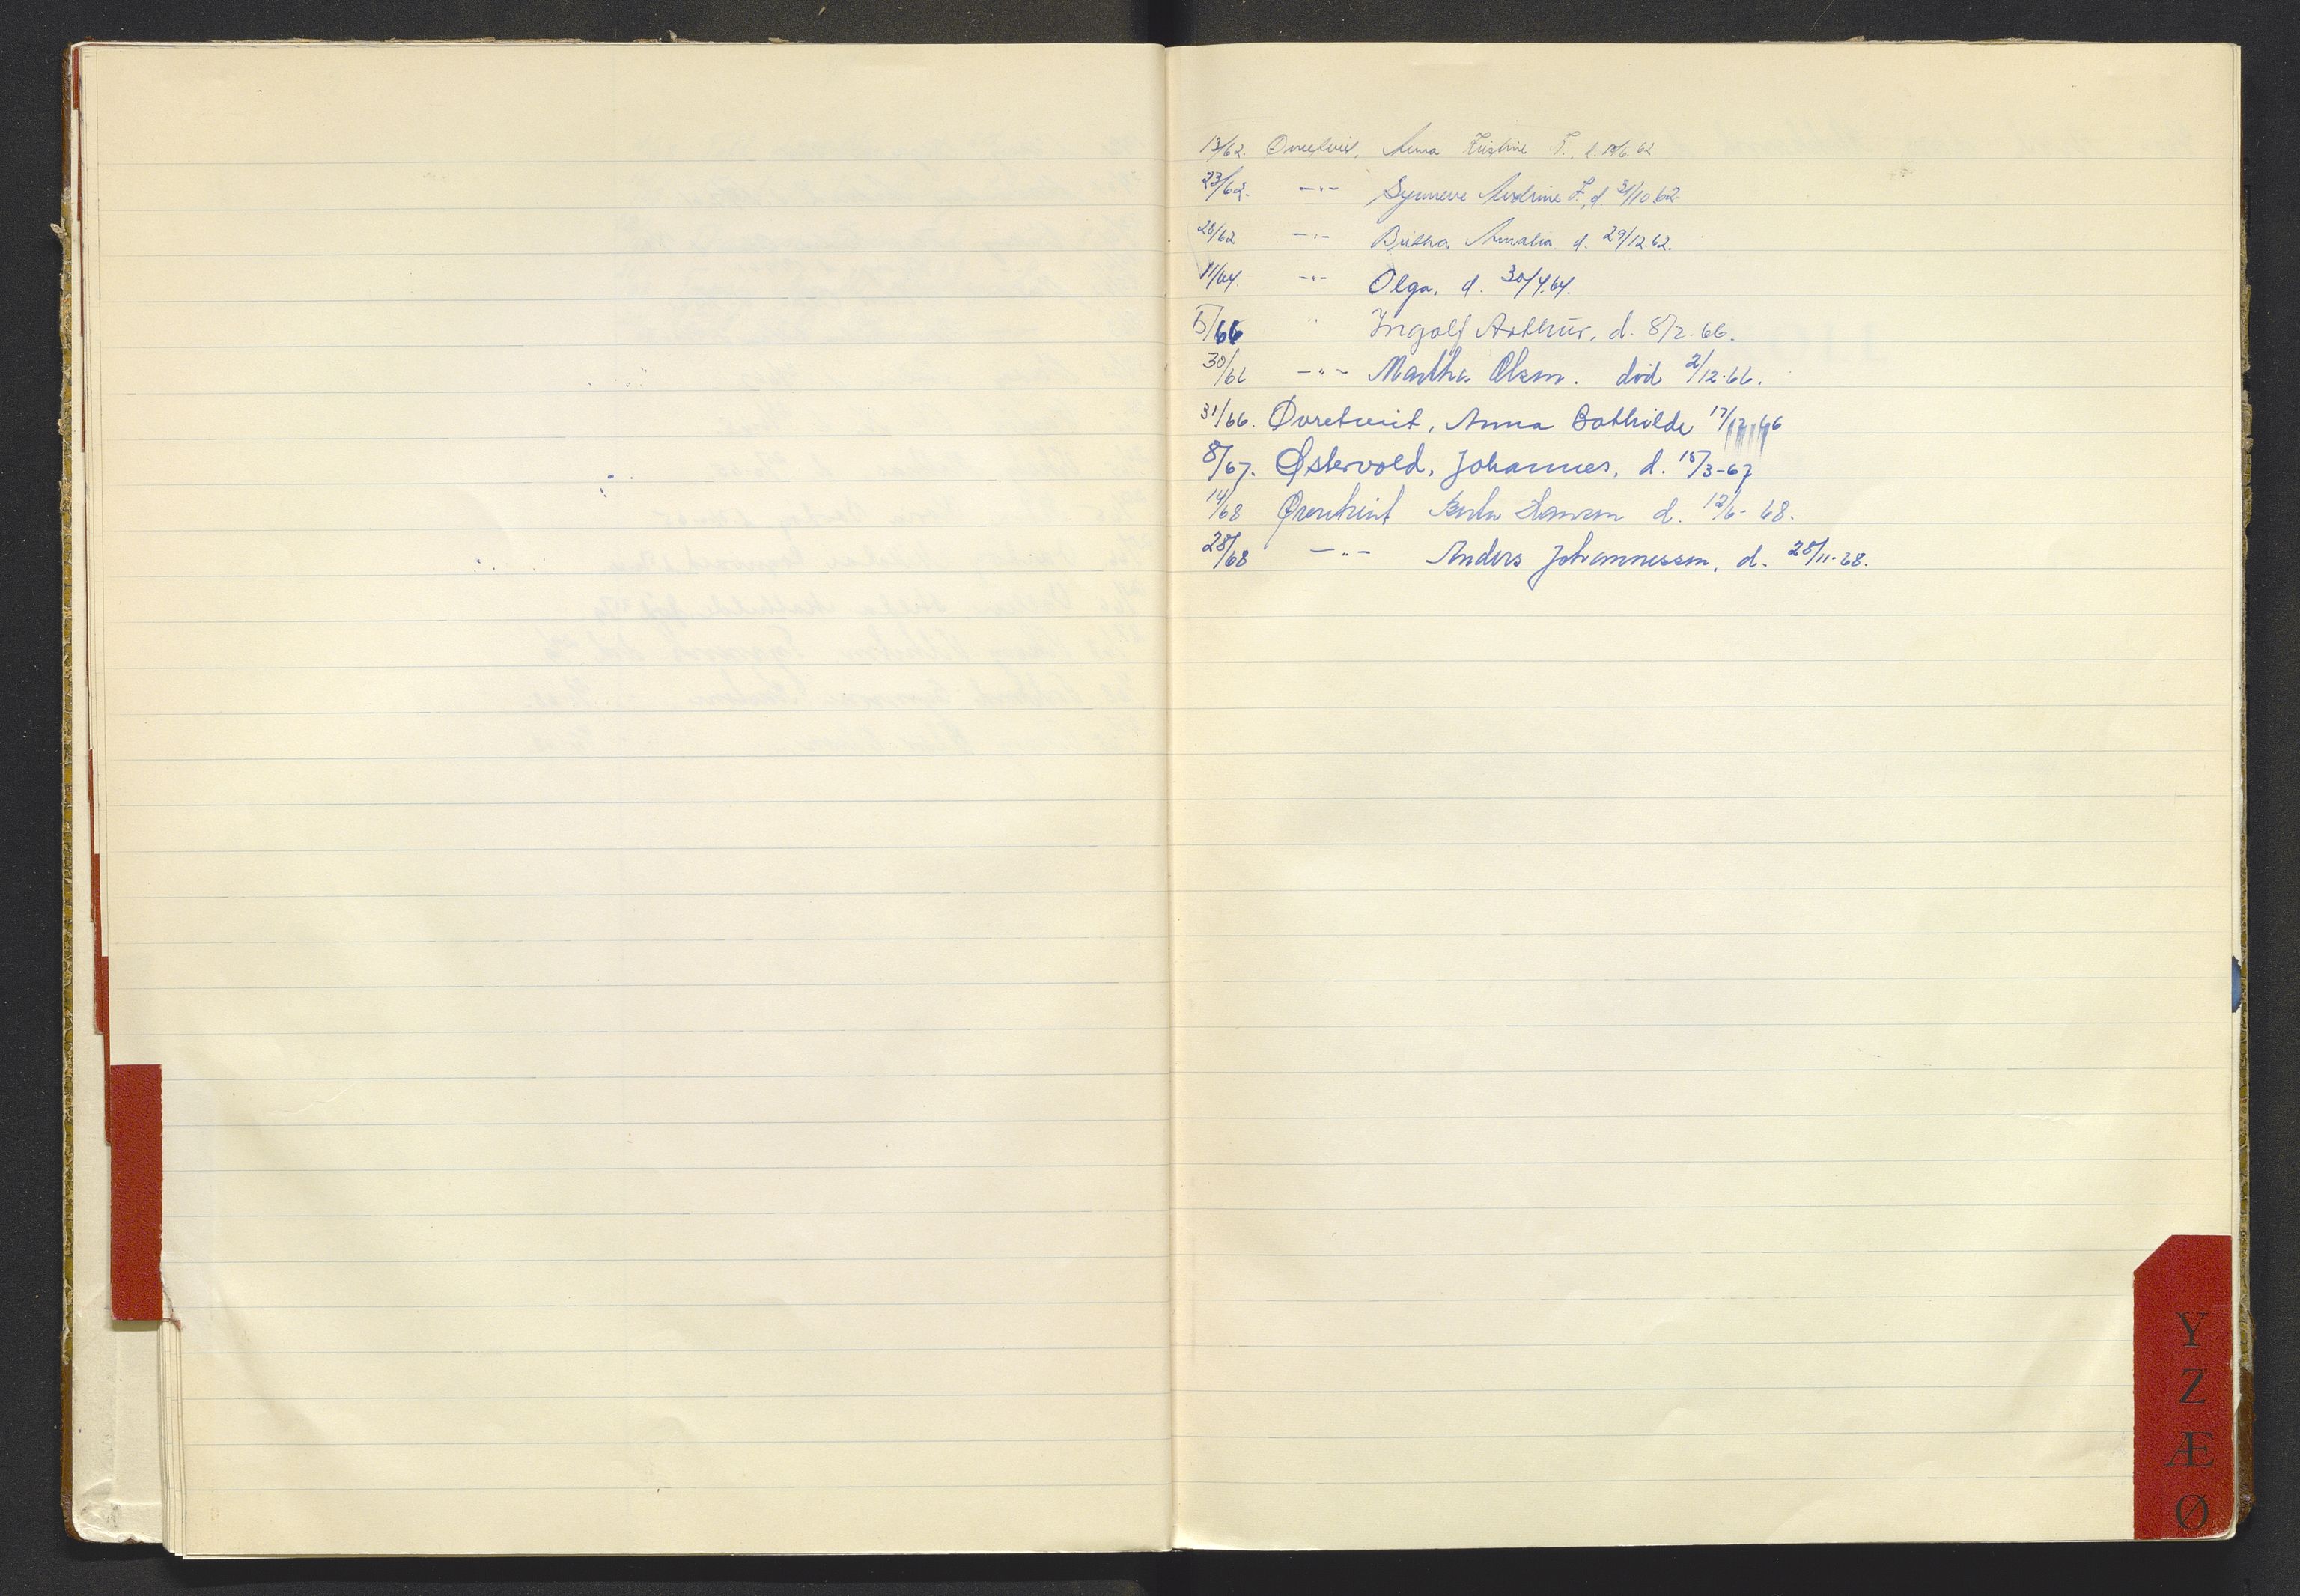 13/62. Øvretveit, Anna Kristine T., d. 19/6.62
23/62. -"- Synneve Andrine F., d. 31/10.62.
28/62 -"- Britha Amalia d. 29/12.62.
11/64. -"- Olga. d. 30/4.64.
5/66 " Ingolf Arthur, d. 8/2.66.
30/66 -"- Martha Olsen. död 2/12.66.
31/66. Øvretveit, Anna Bothilde 17/12.66
8/67. Østervold, Johannes, d. 15/3-67
14/68 Øvretveit d. 12/6-68.
28/68 -"- Anders Johannessen, d. 28/11-68.
Y
Z
Æ
Ø